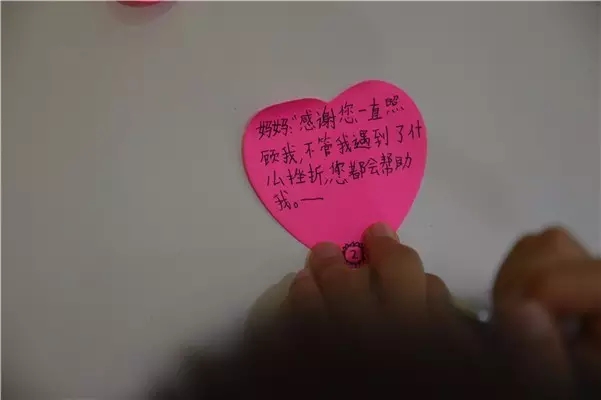 妈妈:"感谢您一直照
顾我,不管我遇到了什
么挫折,您都会帮助
我。一
2